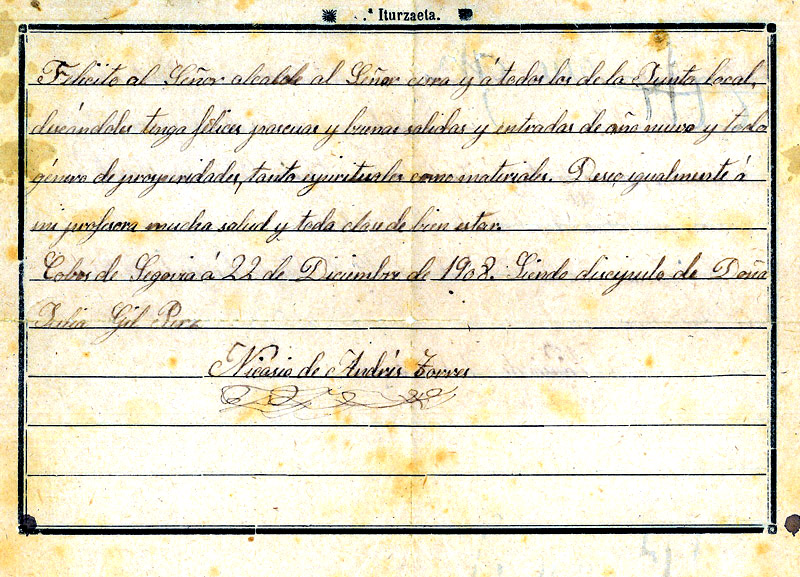 Iturzaeta.
Felicito al Señor alcalde al Señor cura y á todos los de la Junta local,
deseándoles tenga felices pascuas y buenas salidas y entradas de año nuevo y todo
género de prosperidades, tanto espirituales como materiales. Deseo igualmente á
mi profesora mucha salud y toda clase de bien estar.
Cobos de Segovia á 22 de Diciembre de 1908. Siendo discipulo de Doña
Julia Gil Perez
Nicasio de Andrés Torres